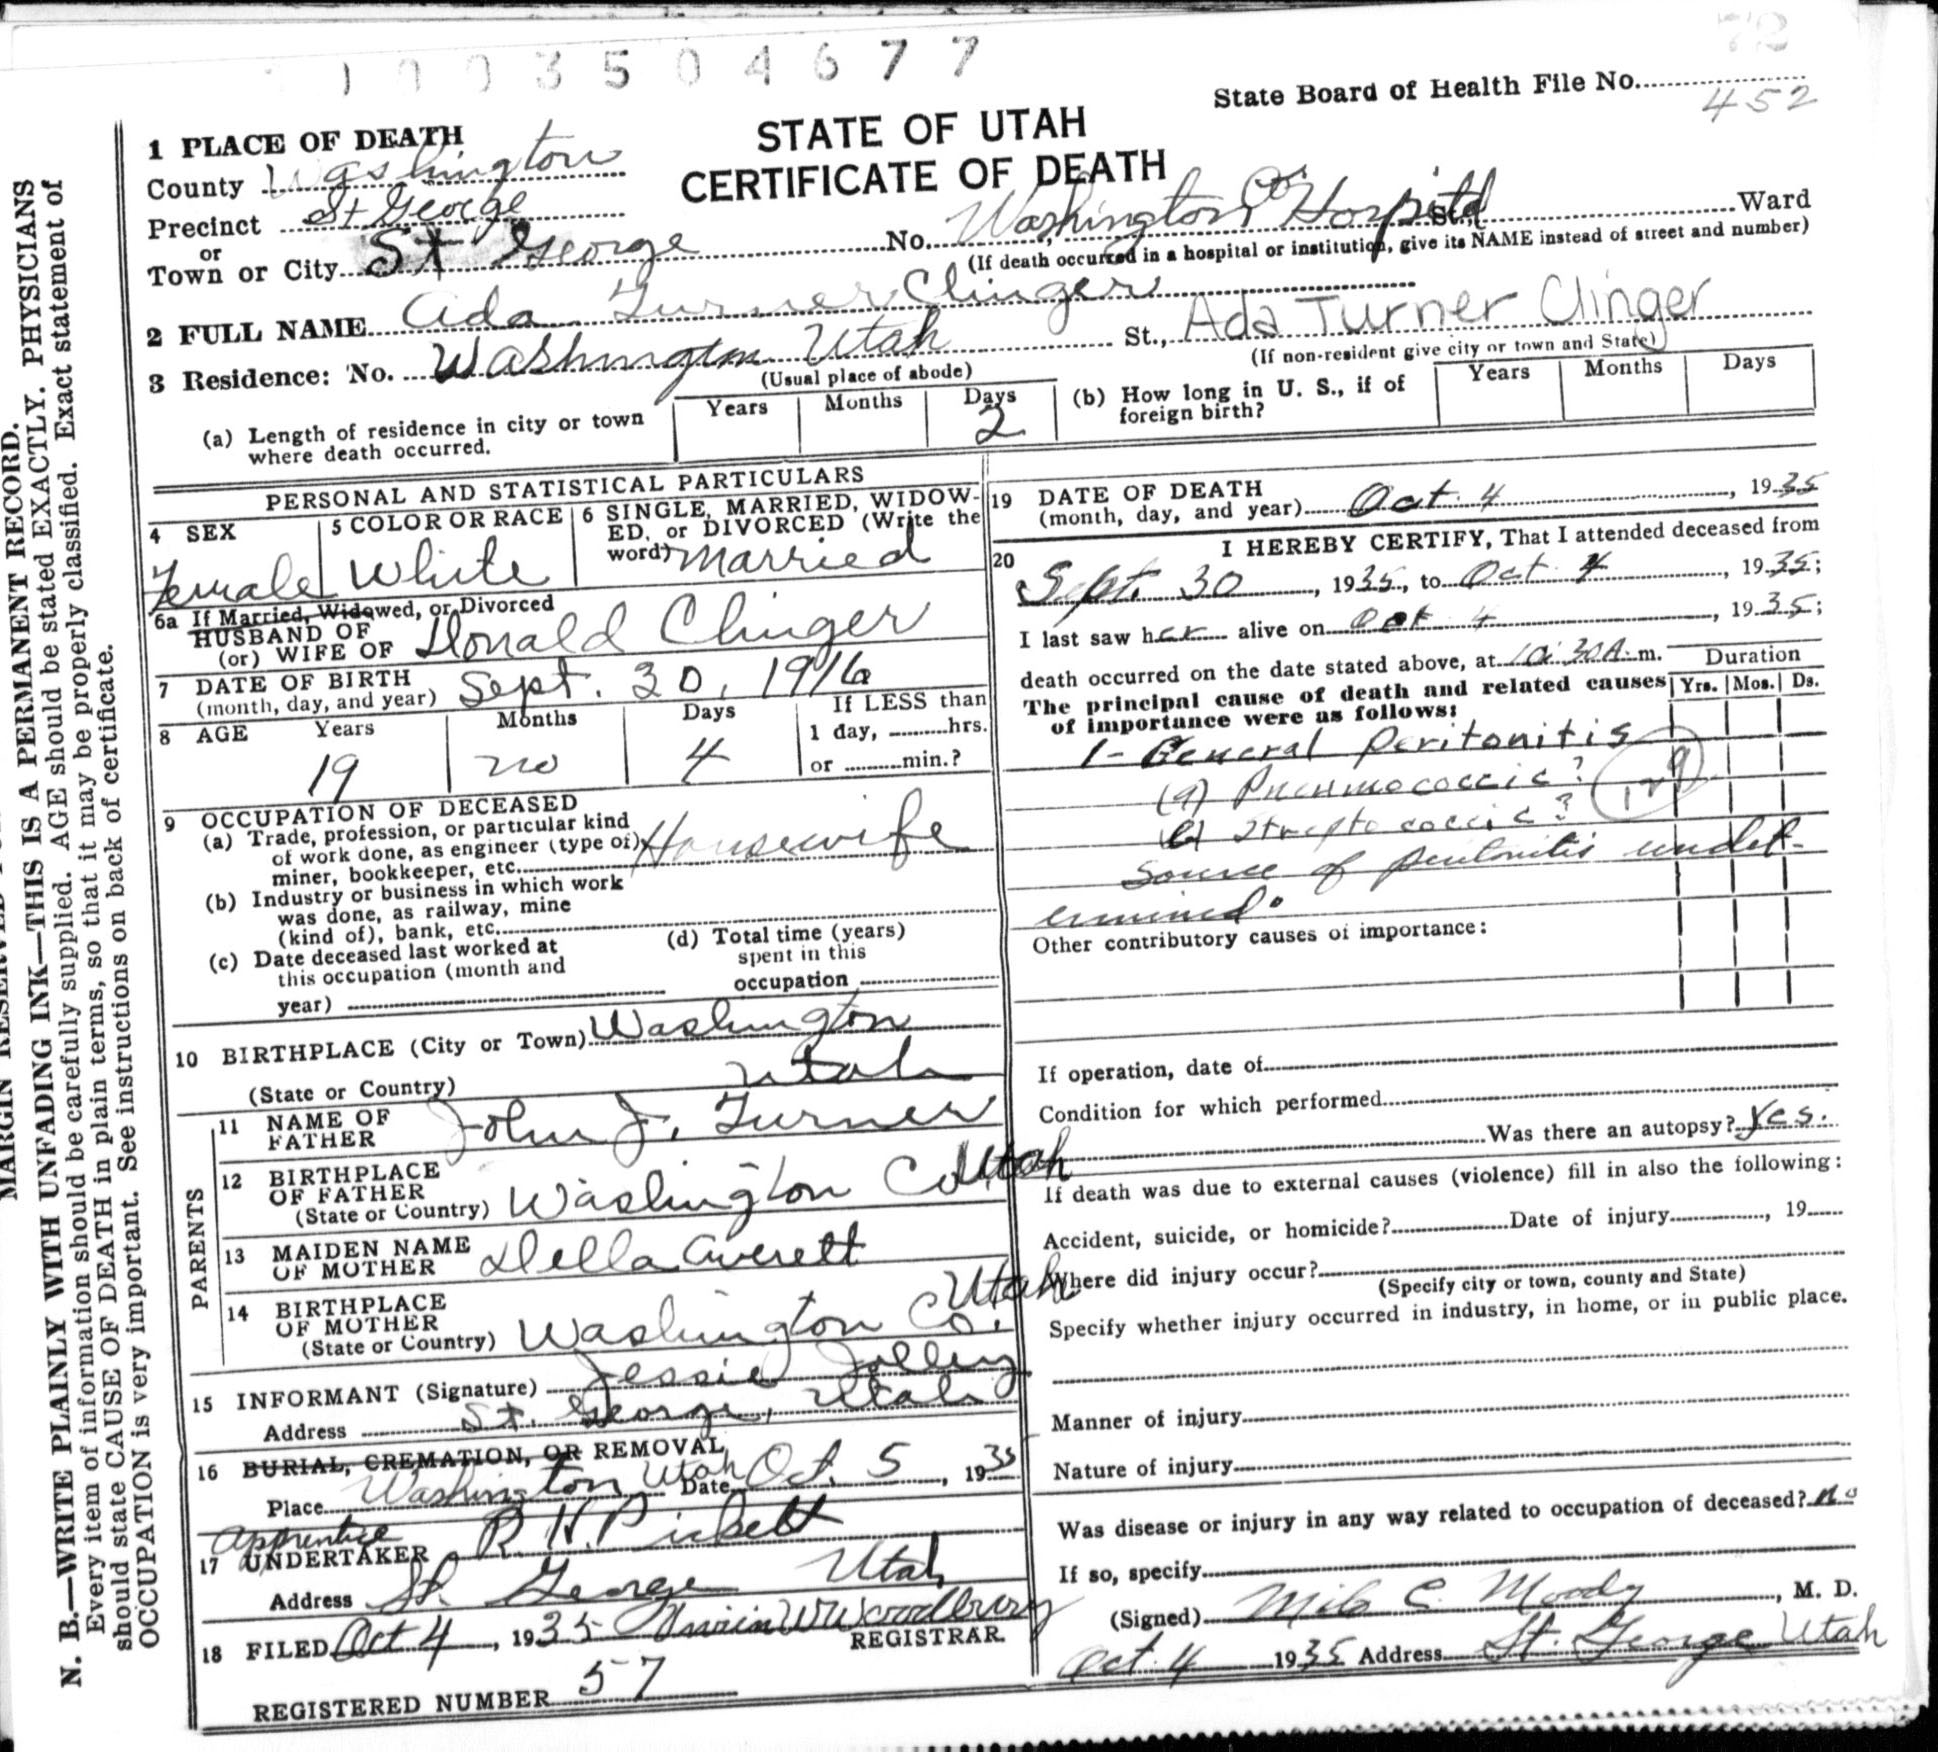 1003504677
72
State Board of Health File No.
452
STATE OF UTAH
CERTIFICATE OF DEATH
1 PLACE OF DEATH
County Washington
Precinct St George
or
Town or City St George No. Washington Co. Hospital St., Ward
(If death occurred in a hospital or institution, give its NAME instead of street and number)
2 FULL NAME Ada Turner Clinger
3 Residence: No. Washington Utah St., Ada Turner Clinger
(Usual place of abode) (If non-resident give city or town and State)
(a) Length of residence in city or town where death occurred. Years Months Days 2
(b) How long in U. S., if of foreign birth? Years Months Days
PERSONAL AND STATISTICAL PARTICULARS
4 SEX Female
5 COLOR OR RACE White
6 SINGLE, MARRIED, WIDOW-
ED, or DIVORCED (Write the
word) Married
6a If Married, Widowed, or Divorced
HUSBAND OF
(or) WIFE OF Donald Clinger
7 DATE OF BIRTH
(month, day, and year) Sept. 30, 1916
8 AGE Years Months Days If LESS than
1 day, hrs.
19 no 4 or min.?
9 OCCUPATION OF DECEASED
(a) Trade, profession, or particular kind
of work done, as engineer (type of)
miner, bookkeeper, etc. Housewife
(b) Industry or business in which work
was done, as railway, mine
(kind of), bank, etc.
(c) Date deceased last worked at
this occupation (month and
year)
(d) Total time (years)
spent in this
occupation
10 BIRTHPLACE (City or Town) Washington
(State or Country) Utah
PARENTS
11 NAME OF
FATHER John J. Turner
12 BIRTHPLACE
OF FATHER
(State or Country) Washington Co Utah
13 MAIDEN NAME
OF MOTHER Della Averett
14 BIRTHPLACE
OF MOTHER
(State or Country) Washington Co. Utah
15 INFORMANT (Signature) Jessie Jolley
Address St. George, Utah
16 BURIAL, CREMATION, OR REMOVAL
Place Washington Utah Date Oct. 5, 1935
Apprentice
17 UNDERTAKER R. H. Pickett
Address St. George Utah
18 FILED Oct 4, 1935 Woodbury
REGISTRAR.
REGISTERED NUMBER 57
19 DATE OF DEATH
(month, day, and year) Oct. 4, 1935
20 I HEREBY CERTIFY, That I attended deceased from
Sept. 30, 1935, to Oct 4, 1935;
I last saw her alive on Oct 4, 1935;
death occurred on the date stated above, at 10:30A. m.
The principal cause of death and related causes
of importance were as follows:
Duration
Yrs. Mos. Ds.
1- General Peritonitis
(a) Pneumococcic?
(b) Streptococcic?
129
Source of peritonitis undet-
ermined.
Other contributory causes of importance:
If operation, date of
Condition for which performed
Was there an autopsy? Yes.
If death was due to external causes (violence) fill in also the following:
Accident, suicide, or homicide? Date of injury, 19
Where did injury occur?
(Specify city or town, county and State)
Specify whether injury occurred in industry, in home, or in public place.
Manner of injury
Nature of injury
Was disease or injury in any way related to occupation of deceased? no
If so, specify
(Signed) Milo C. Moody, M. D.
Oct. 4 1935 Address St. George Utah
N. B.—WRITE PLAINLY WITH UNFADING INK—THIS IS A PERMANENT RECORD.
Every item of information should be carefully supplied. AGE should be stated EXACTLY. PHYSICIANS
should state CAUSE OF DEATH in plain terms, so that it may be properly classified. Exact statement of
OCCUPATION is very important. See instructions on back of certificate.